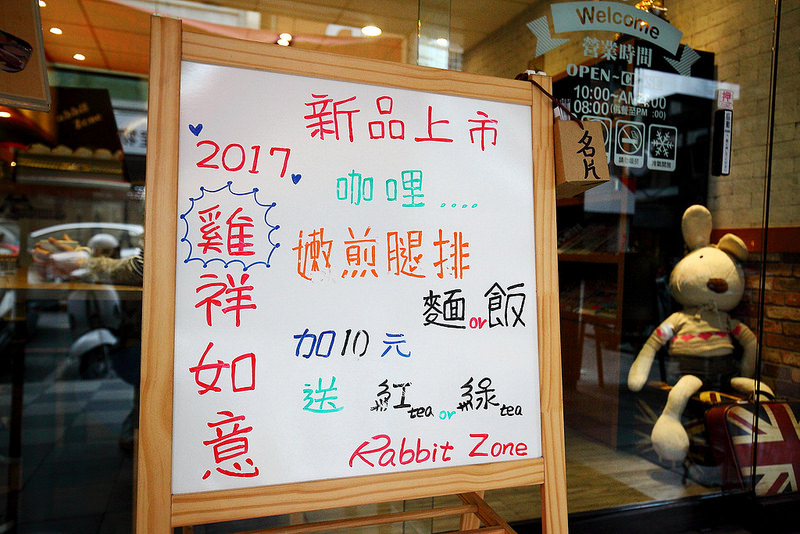 新品上市
2017
雞
祥
如
意
咖哩....
嫩煎腿排
麵or飯
加10元
送 紅tea or 綠tea
Rabbit Zone
名片
Welcome
營業時間
OPEN~
10:00~AM
08:00